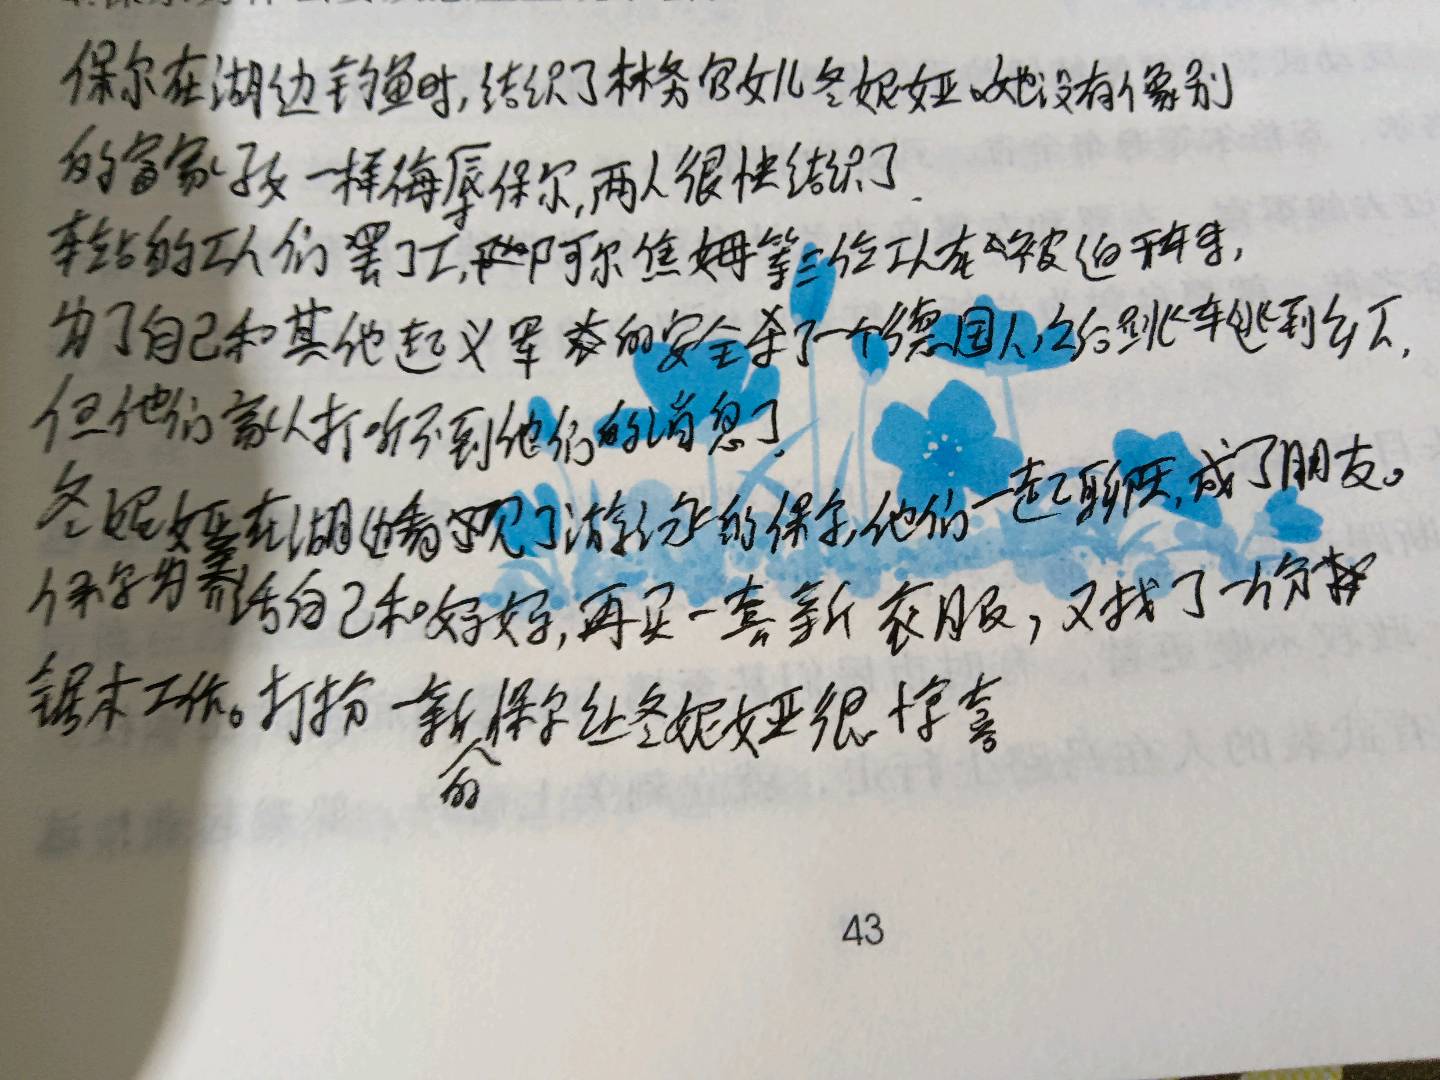 保尔在湖边钓鱼时，结识了林务官女儿冬妮娅。她没有像别
的富家子女一样侮辱保尔，两人很快结识了.
车站的工人们罢了工，阿尔焦姆等三位工人在被迫开车时，
为了自己和其他起义军的安全杀了一个德国人后跳车逃到乡下，
但他们家人打听不到他们的消息了
冬妮娅在湖边看见了游泳的保尔，他们一起聊天，成了朋友。
保尔为养活自己和妈妈，再买一套新衣服，又找了一份
锯木工作。打扮一新的保尔让冬妮娅很惊喜
43